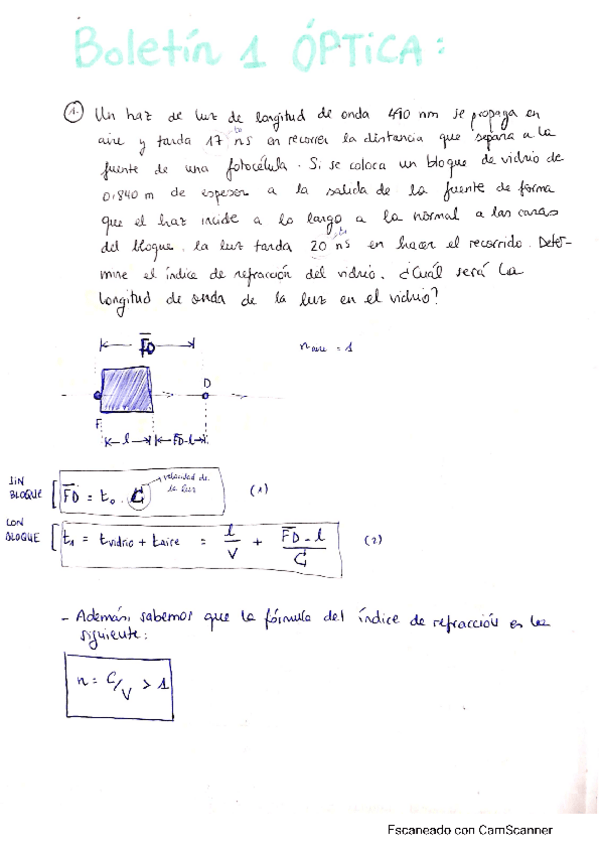 Boletín 1 ÓPTICA:
1. Un haz de luz de longitud de onda 490 nm se propaga en
aire y tarda 17 ns en recorrer la distancia que separa a la
to
fuente de una fotocélula. Si se coloca un bloque de vidrio de
0.840 m de espesor a la salida de la fuente de forma
que el haz incide a lo largo a la normal a las caras
t1
del bloque, la luz tarda 20 ns en hacer el recorrido. Deter-
mine el índice de refracción del vidrio. ¿Cuál será la
longitud de onda de la luz en el vidrio?
FD
n aire = 1
D
F
l FD-l
SIN BLOQUE FD = to . C velocidad de la luz (1)
CON BLOQUE t1 = tvidrio + taire = l/V + FD-l/C (2)
- Además, sabemos que la fórmula del índice de refracción es la
siguiente:
n = C/V > 1
Escaneado con CamScanner